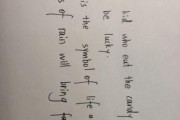 kid who eat the candy
be lucky.
is the symbol of life a
s of rain will bring fo